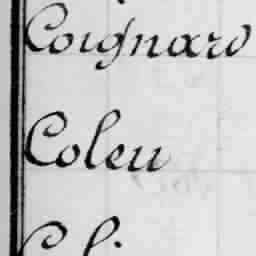 Coignard
Coleu